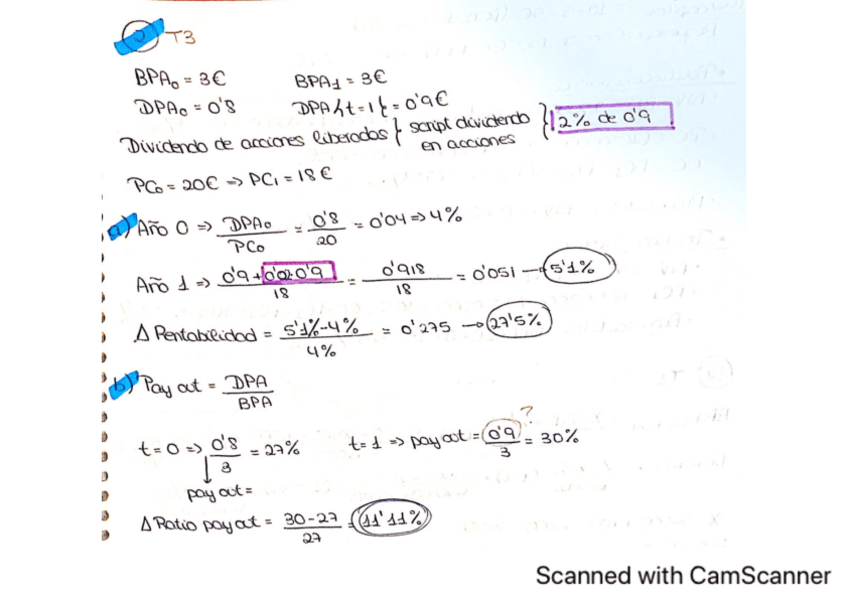 T3
BPA₀ = 3€ BPA₁ = 3€
DPA₀ = 0'8 DPA {t=1} = 0'9€
Dividendo de acciones liberadas } script dividendo en acciones } 2% de 0'9
PC₀ = 20€ => PC₁ = 18€
a) Año 0 => DPA₀/PC₀ = 0'8/20 = 0'04 => 4%
Año 1 => 0'9+0'02·0'9/18 = 0'918/18 = 0'051 → 5'1%
Δ Rentabilidad = 5'1%-4%/4% = 0'275 → 27'5%
b) Pay out = DPA/BPA
t=0 => 0'8/3 = 27% t=1 => pay out = 0'9/3 = 30% ?
pay out =
Δ Ratio pay out = 30-27/27 = 11'11%
Scanned with CamScanner